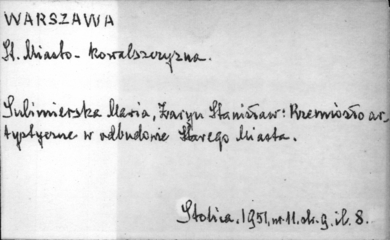 WARSZAWA
St. Miasto - kowalszczyzna.
Sulimierska Maria, Żaryn Stanisław: Rzemiosło ar-
tystyczne w odbudowie Starego Miasta.
Stolica. 1951, nr 11. str. 9, il. 8.